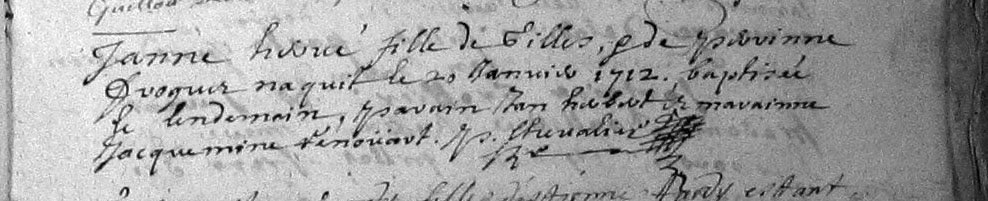 Guillou
Janne hervé fille de Gilles, & de perrinne
Droguer naquit le 20 Janvier 1712. baptisée
le lendemain, parain Jan herbert & marainne
Jacquemine renouart. p. Chevalier
fille d'Estienne estant